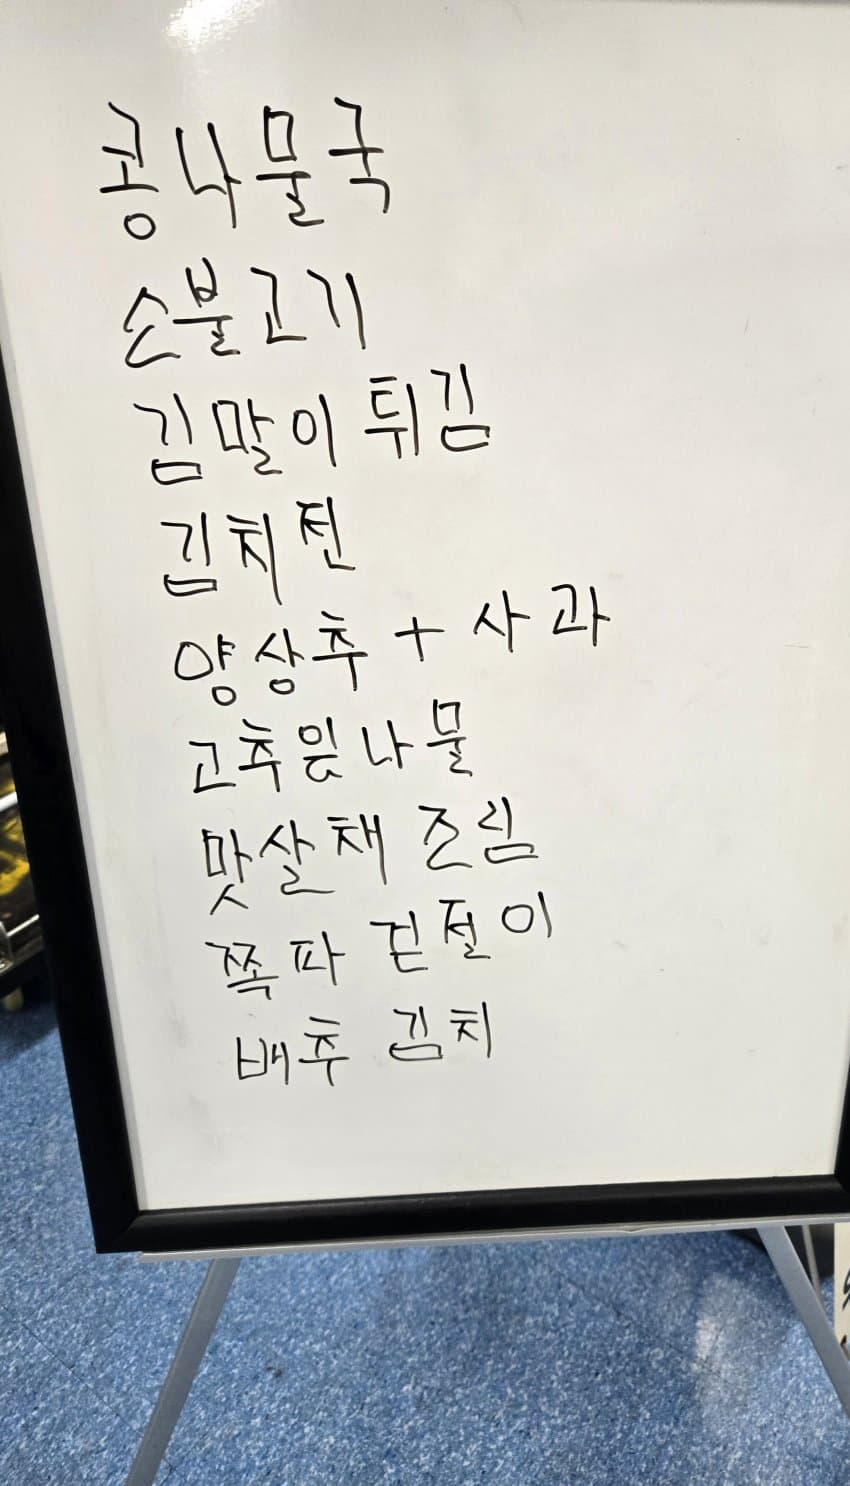 콩나물국
손불고기
김말이 튀김
김치전
양상추 + 사과
고추잎나물
맛살채 조림
쪽파 겉절이
배추 김치